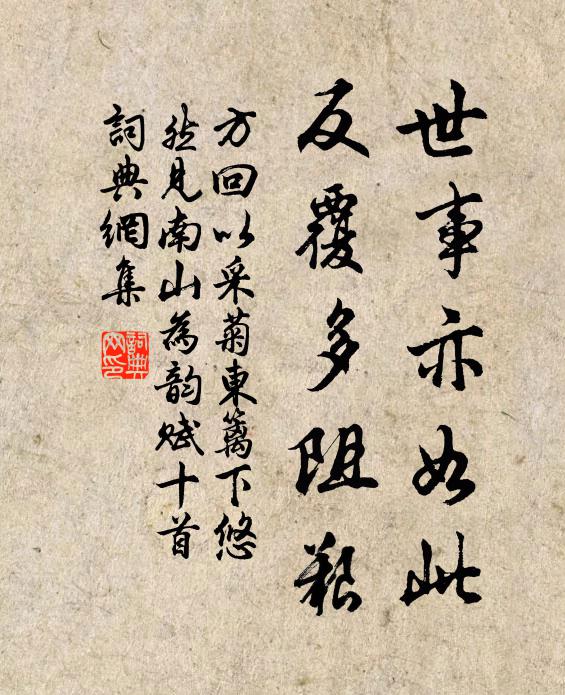 世事亦如此
反覆多阻艱
方回以采菊東籬下悠
然見南山為韵賦十首
詞典網集
詞典网印